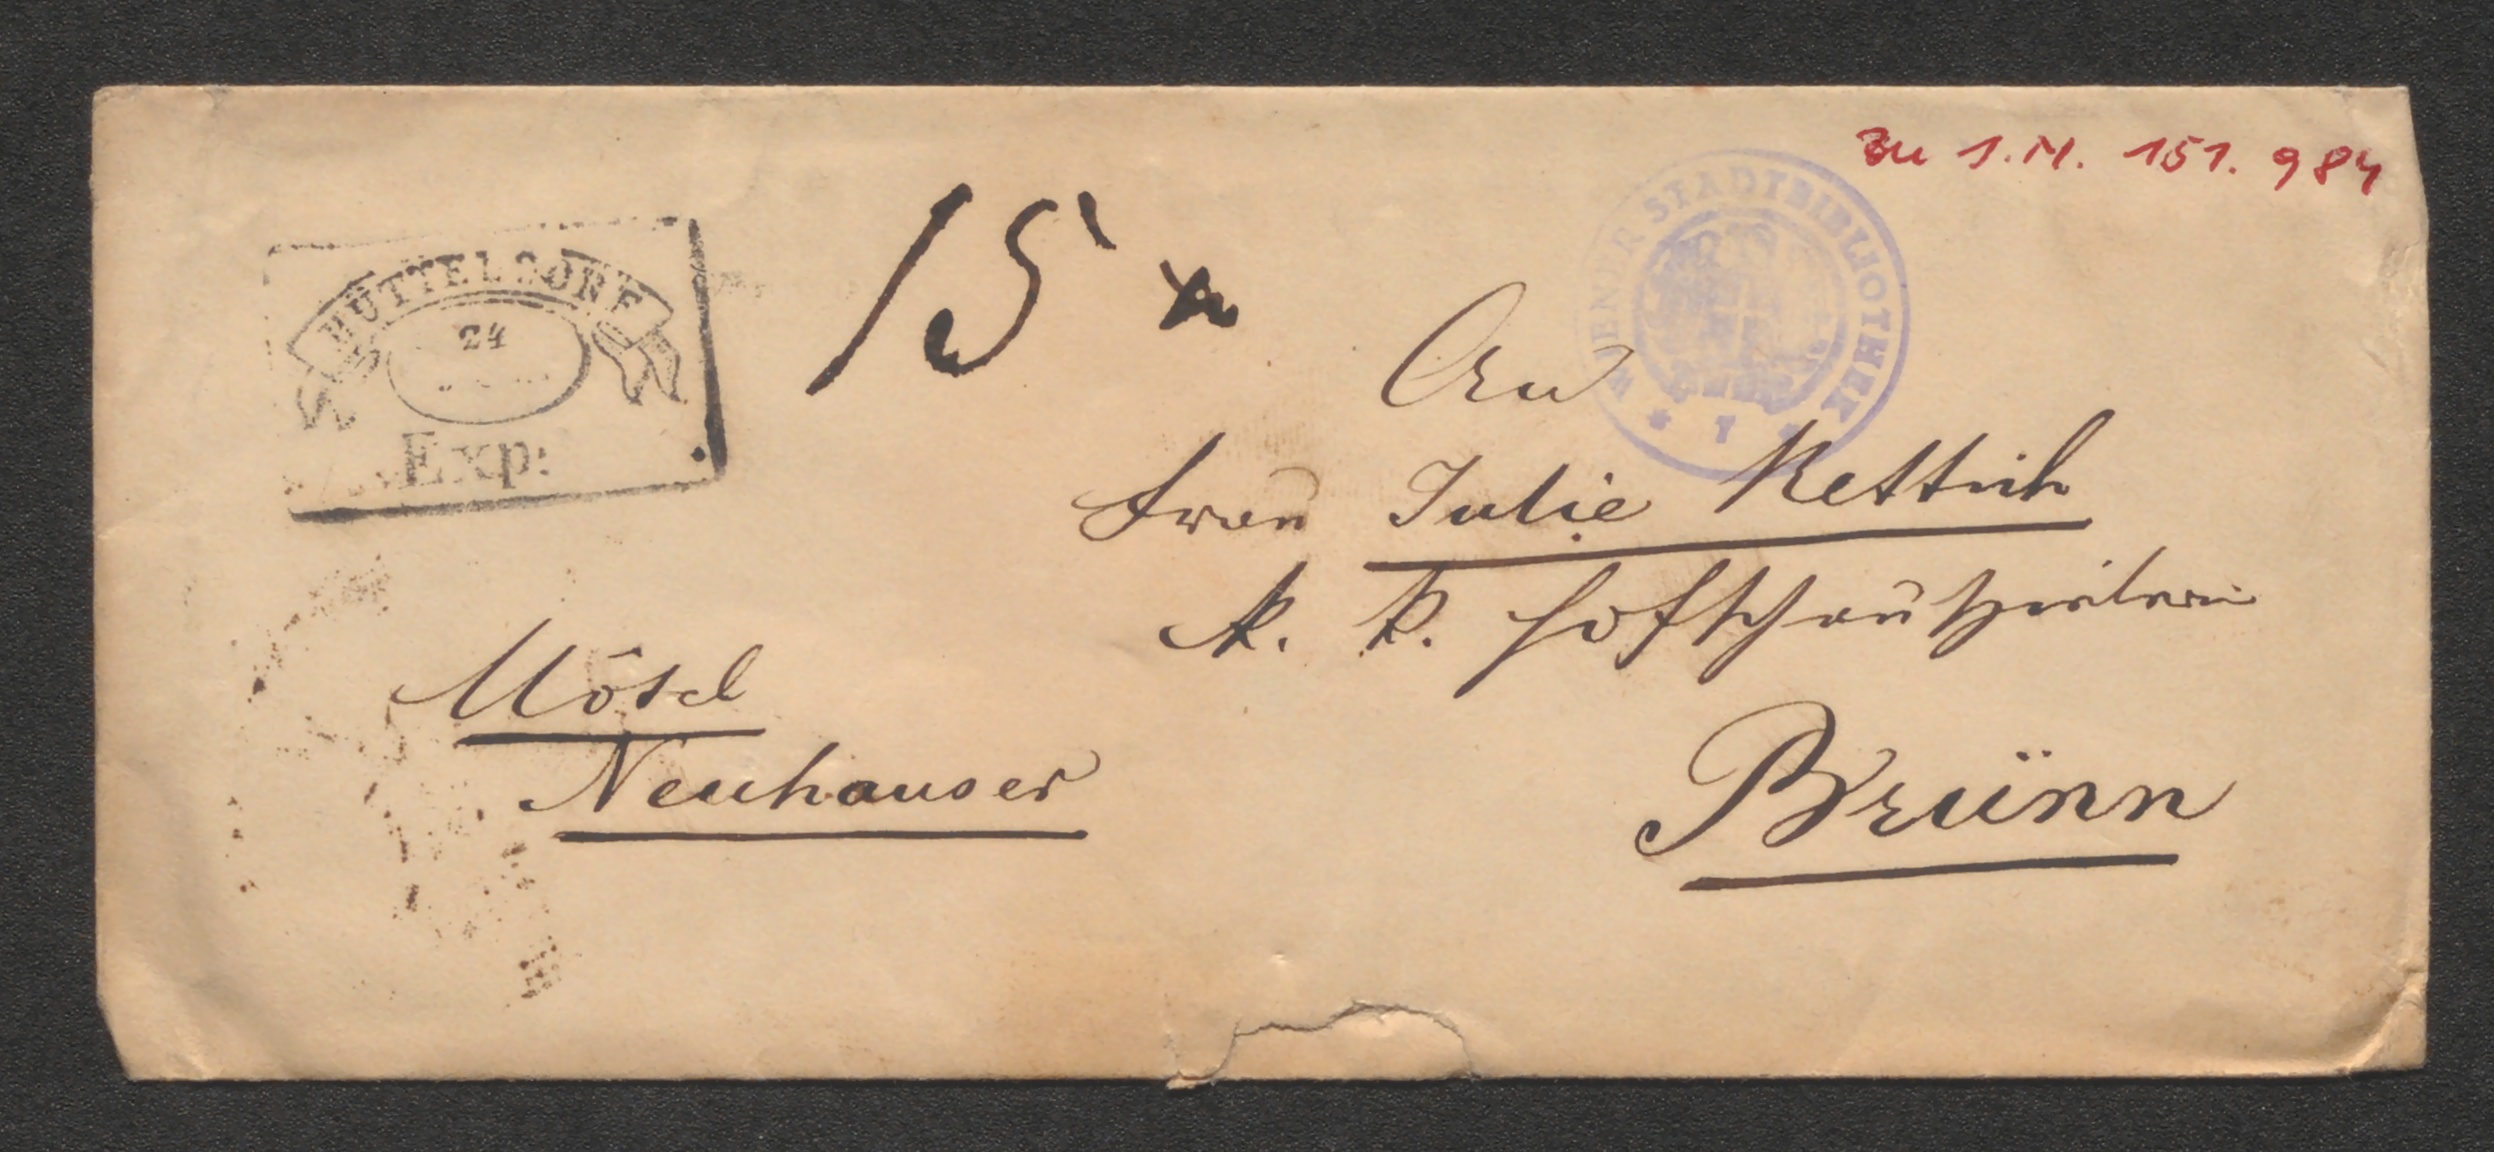 Zu I.N. 151.984
WIENER STADTBIBLIOTHEK
* 7 *
HÜTTELDORF
24
Exp:
15 x
An
Frau Julie Rettich
k. k. Hofschauspielerin
Mösel
Neuhauser
Brünn